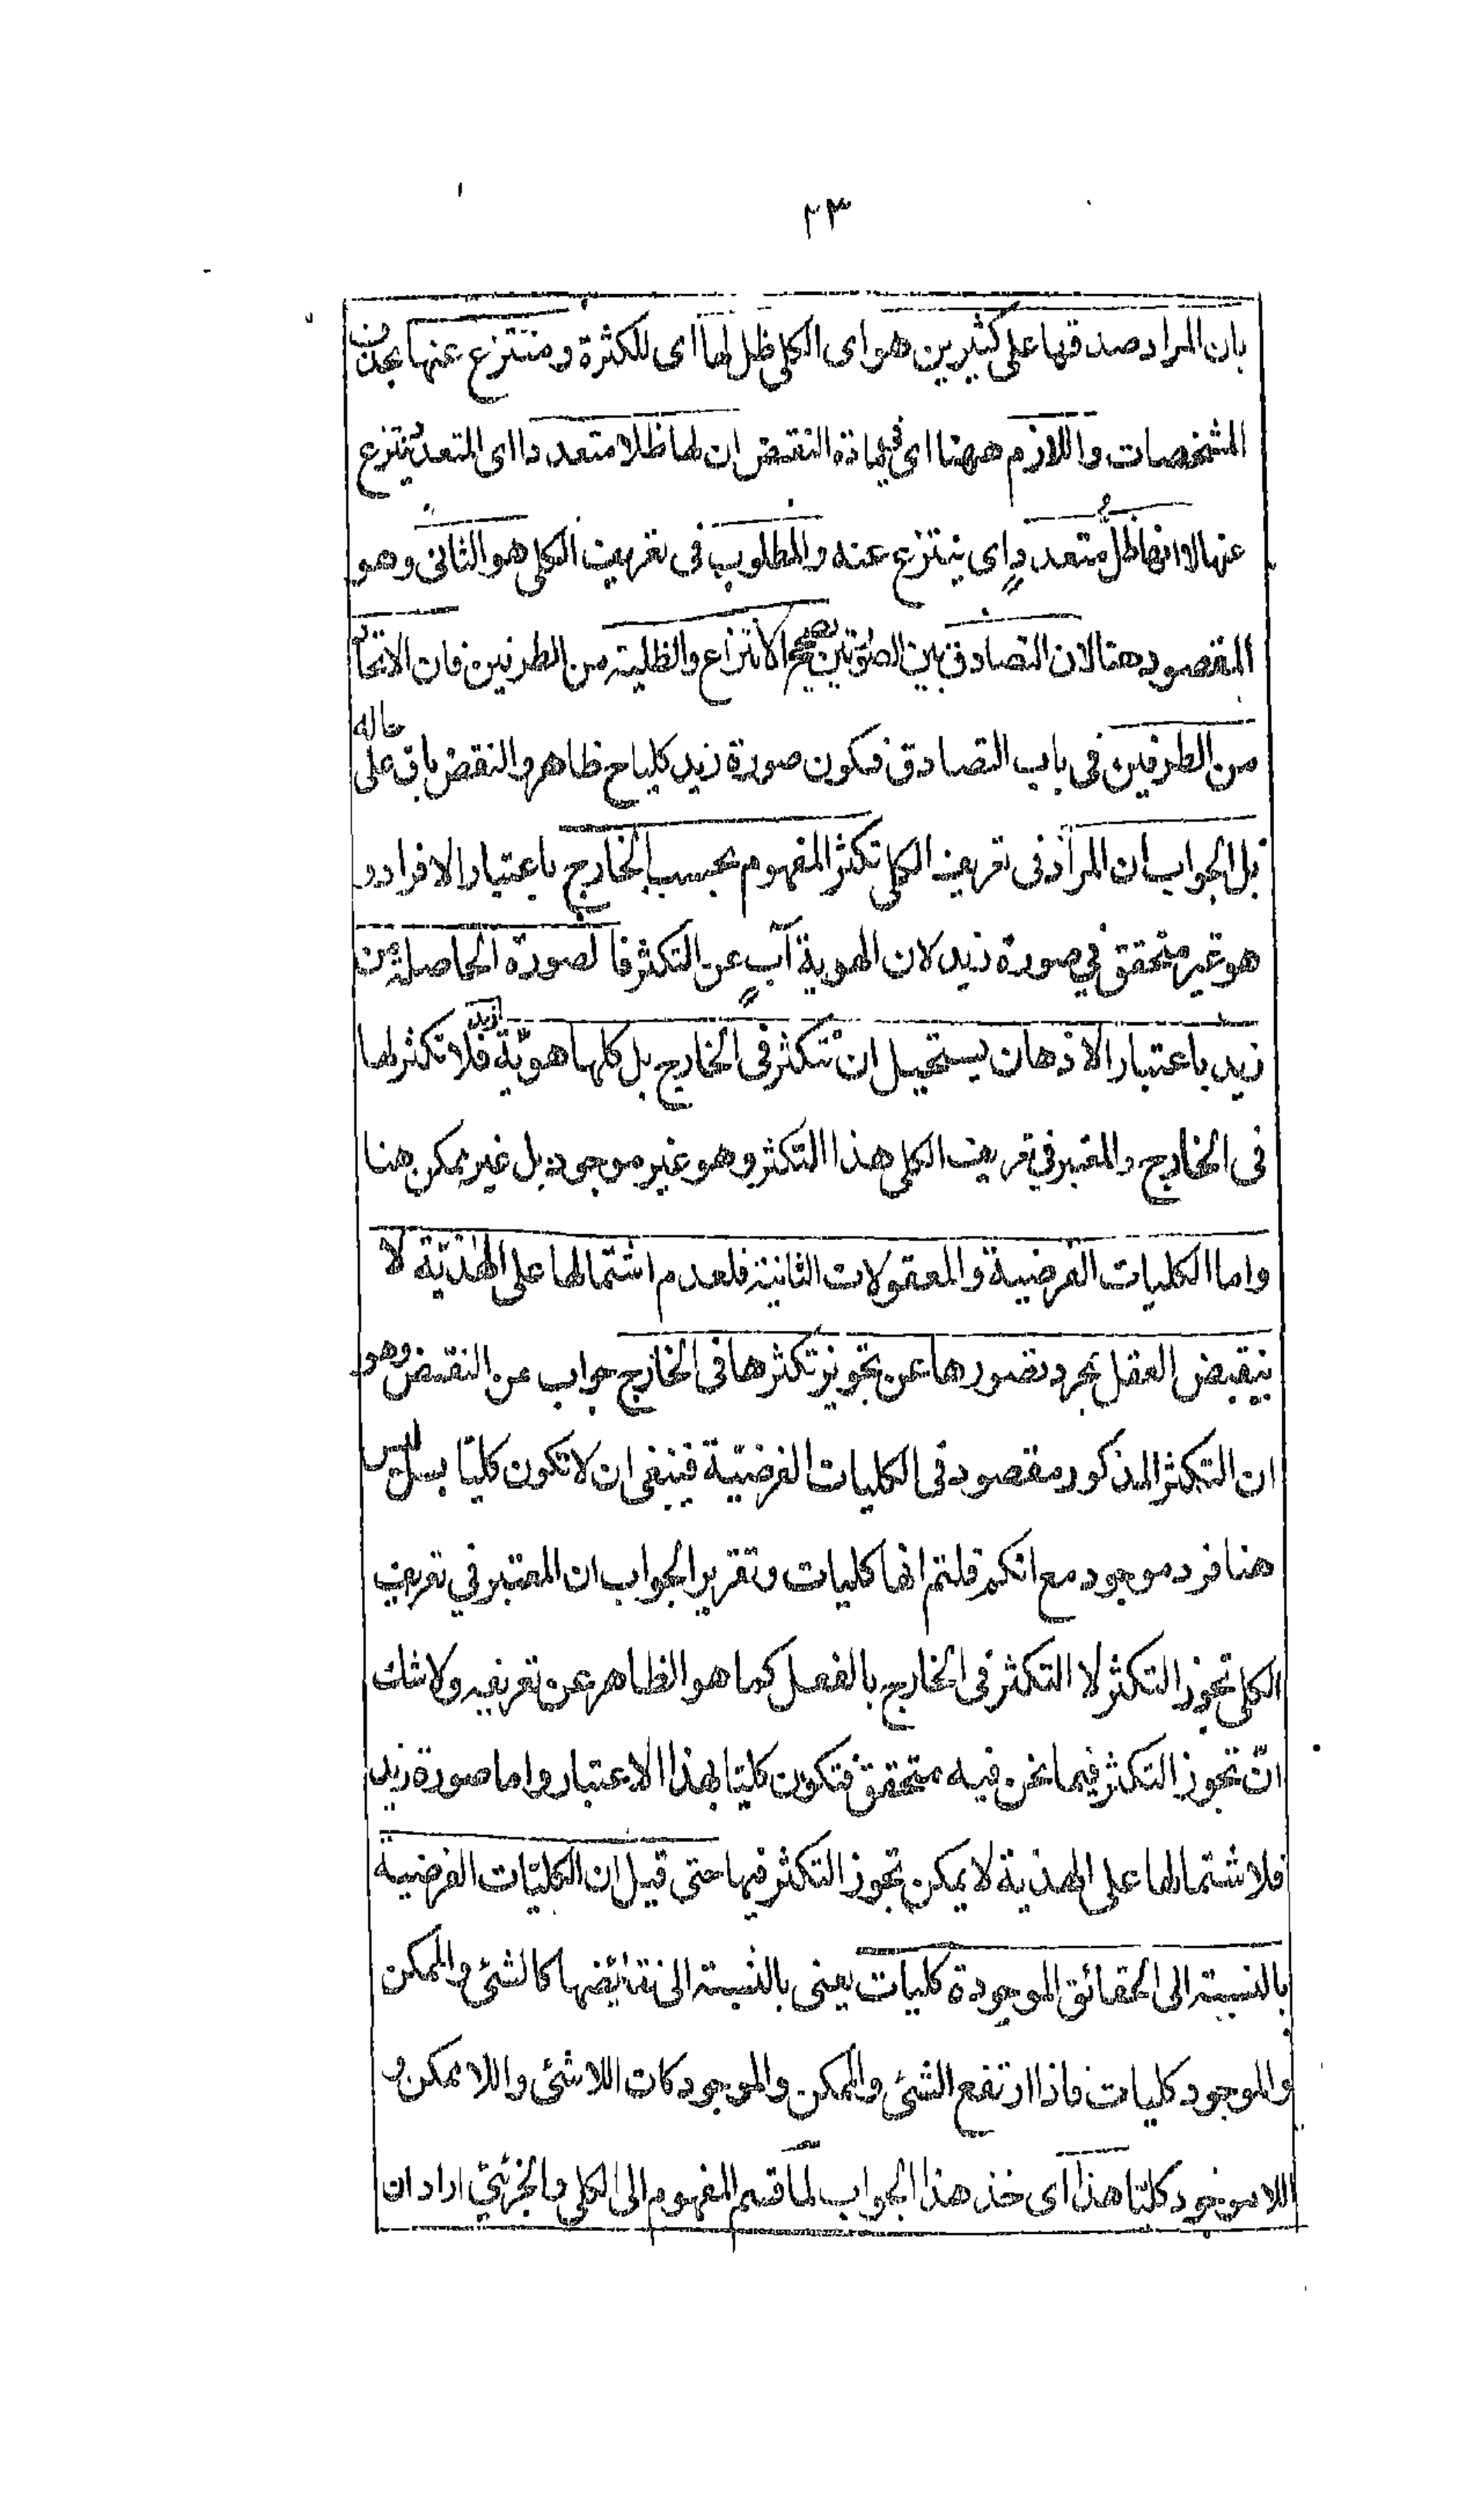 ٢٣
بان المراد صدقها على كثيرين هو اى الكلى ظل لها اى للكثرة ومنتزع عنها بحذف
المشخصات واللازم ههنا اى فى مادة النقض ان لها ظلا متعددا اى المتعدد ينتزع
عنها لا انها ظل متعدد اى ينتزع عنه والمطلوب فى تعريف الكلى هو الثانى وهو
المقصود هنا لان التصادق بين الصورتين يصحح الانتزاع والظلية من الطرفين فان الاتحاد
من الطرفين فى باب التصادق فيكون صورة زيد كليا ح ظاهر والنقض باق على حاله
بل الجواب ان المراد فى تعريف الكلى تكثر المفهوم بحسب الخارج باعتبار الافراد و
هو غير متحقق في صورة زيد لان الهوية آبٍ عن التكثر فا لصورة الحاصلة من
زيد باعتبار الاذهان يستحيل ان تتكثر فى الخارج بل كلها هويّة زيد فلا تكثر لها
فى الخارج والمعتبر في تعريف الكلى هذا التكثر وهو غير موجود بل غير ممكن هنا
واما الكليات الفرضية والمعقولات الثانية فلعدم اشتمالها على الهذيّة لا
ينقبض العقل بمجرد تصورها عن تجويز تكثرها فى الخارج جواب عن النقض وهو
ان التكثر المذكور مقصود فى الكليات الفرضيّة فينبغى ان لا تكون كليّا بل ليس
هنا فرد موجود مع انكم قلتم انها كليات وتقرير الجواب ان المعتبر في تعريف
الكلى تجوز التكثر لا التكثر فى الخارج بالفعل كما هو الظاهر عن تعريفه ولا شك
انّ تجوز التكثر فيما نحن فيه متحقق فتكون كليّا بهذا الاعتبار واما صورة زيد
فلاشتمالها على الهذية لا يمكن تجوز التكثر فيها حتى قيل ان الكليّات الفرضية
بالنسبة الى الحقائق الموجودة كليات يعنى بالنسبة الى نقائضها كالشئ والممكن
والموجود كليات فاذا ارتفع الشئ والممكن والموجود كان اللاشئ واللا ممكن و
اللا موجود كليّا هذا اى خذ هذا الجواب لما قسم المفهوم الى الكلى والجزئيّ اراد ان